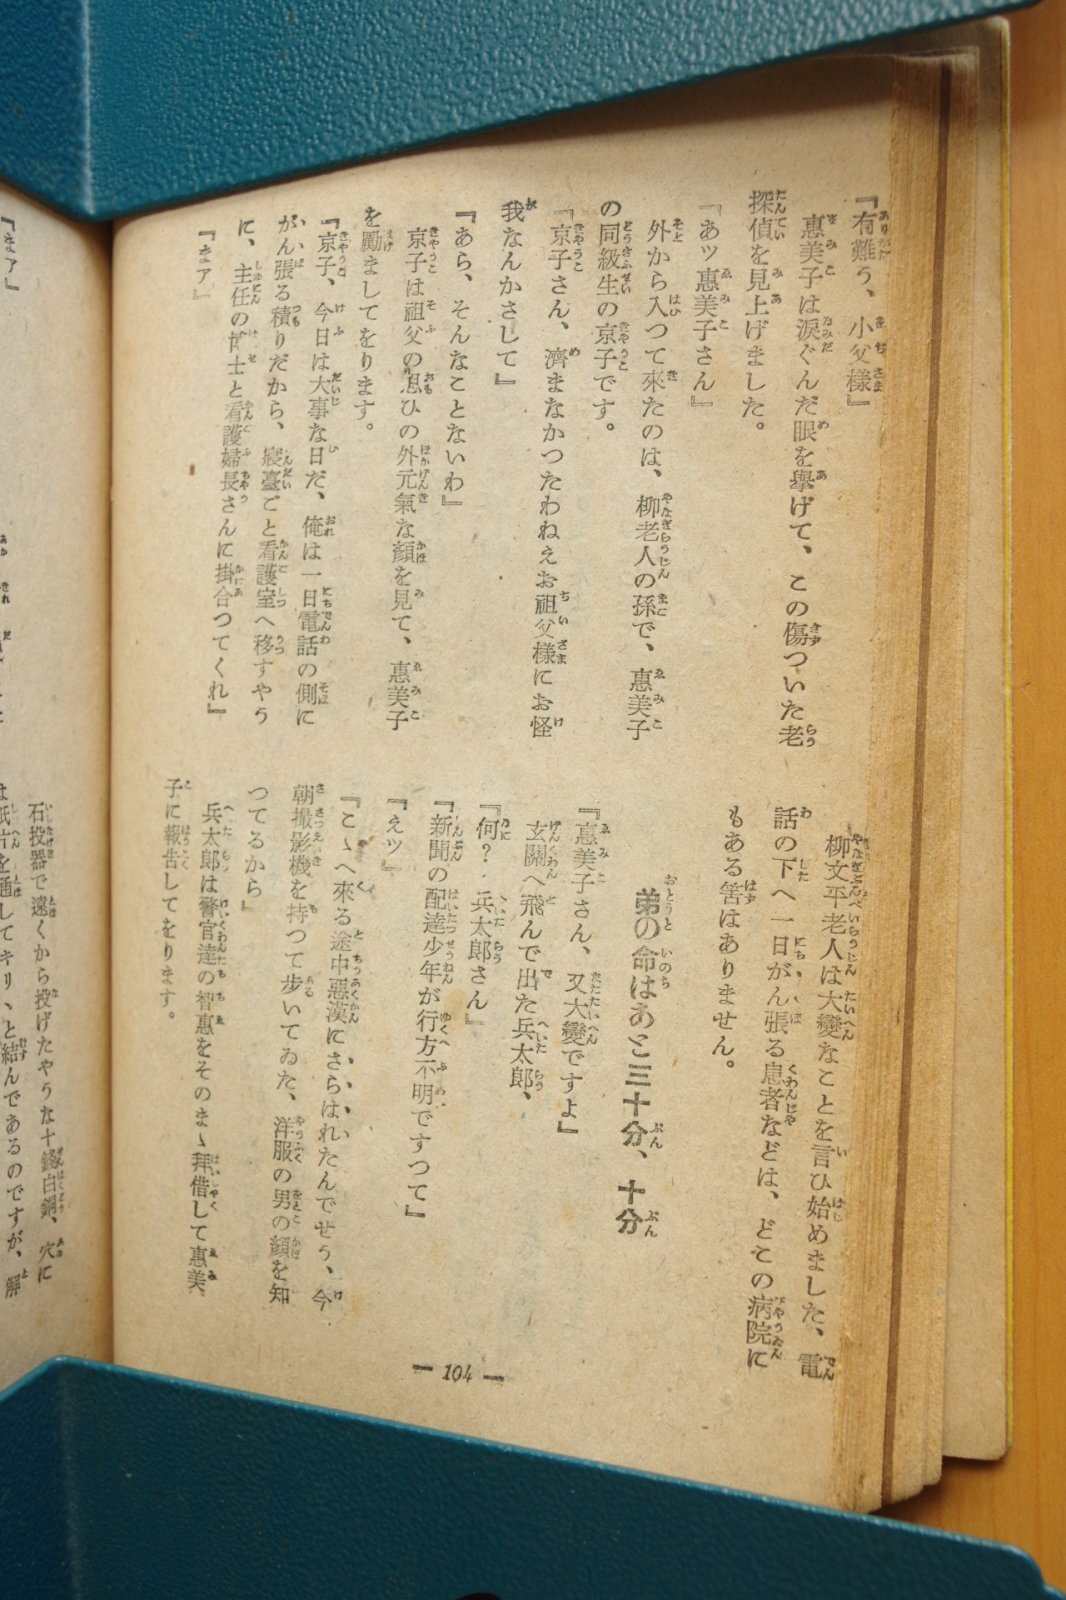 『有難う、小父樣』
惠美子は淚ぐんだ眼を擧げて、この傷ついた老
探偵を見上げました。
『あッ惠美子さん』
外から入つて來たのは、柳老人の孫で、惠美子
の同級生の京子です。
『京子さん、濟まなかつたわねぇお祖父樣にお怪
我なんかさして』
『あら、そんなことないわ』
京子は祖父の思ひの外元氣な顏を見て、惠美子
を勵ましてをります。
『京子、今日は大事な日だ、俺は一日電話の側に
がん張る積りだから、寢臺ごと看護室へ移すやう
に、主任の博士と看護婦長さんに掛合つてくれ』
『まァ』
柳文平老人は大變なことを言ひ始めました、電
話の下へ一日がん張る患者などは、どこの病院に
もある筈はありません。
弟の命はあと三十分、十分
『惠美子さん、又大變ですよ』
玄關へ飛んで出た兵太郎、
『何？　兵太郎さん』
『新聞の配達少年が行方不明ですつて』
『えッ』
『こゝへ來る途中惡漢にさらはれたんでせう、今
朝撮影機を持つて步いてゐた、洋服の男の顏を知
つてるから』
兵太郎は警官達の智惠をそのまゝ拜借して惠美
子に報告してをります。
― 104 ―
『まァ』
石投器で遠くから投げたやうな十錢白銅、穴に
は紙片を通してキリゝと結んであるのですが、解